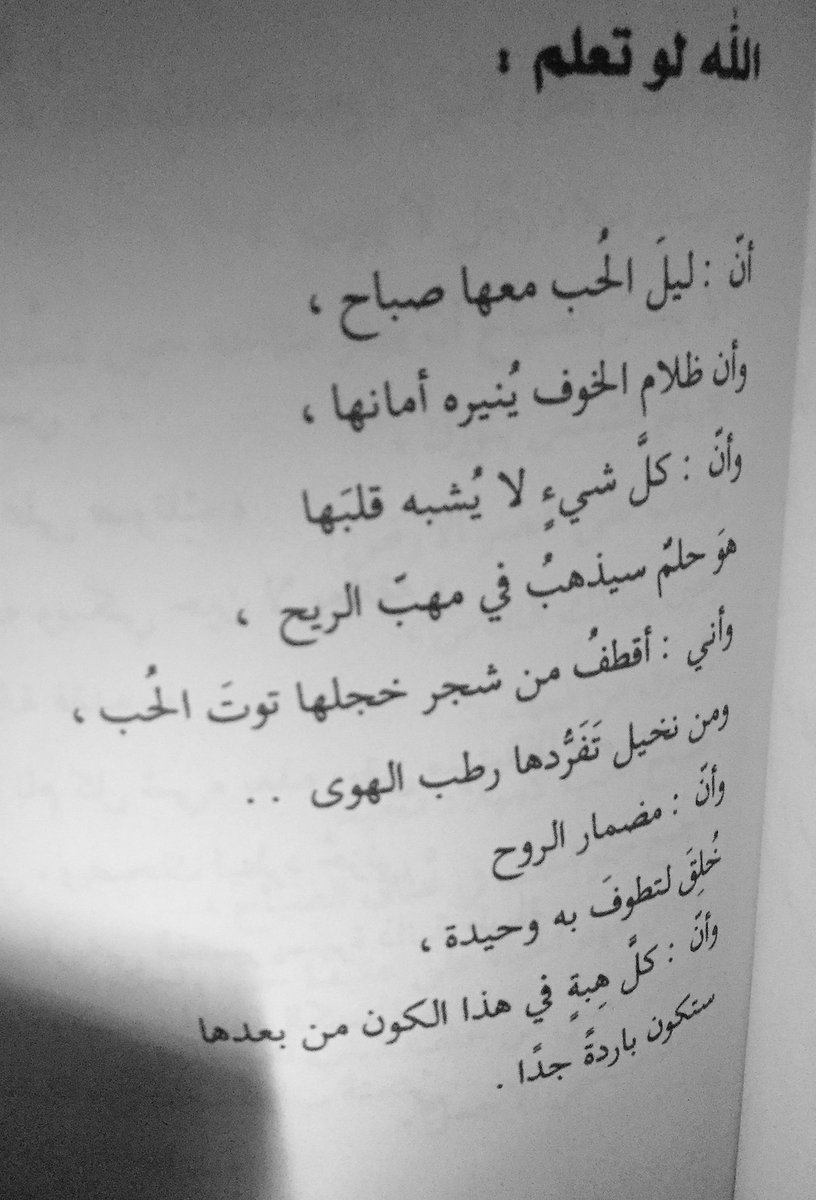 الله لو تعلم :
أنّ : ليلَ الحُب معها صباح ،
وأن ظلام الخوف يُنيره أمانها ،
وأنّ : كلَّ شيءٍ لا يُشبه قلبَها
هوَ حلمٌ سيذهبُ في مهبّ الريح ،
وأني : أقطفُ من شجر خجلها توتَ الحُب ،
ومن نخيل تَفَرُّدها رطب الهوى . .
وأنّ : مضمار الروح
خُلِقَ لتطوفَ به وحيدة ،
وأنّ : كلَّ هِبةٍ في هذا الكون من بعدها
ستكون باردةً جدًا .